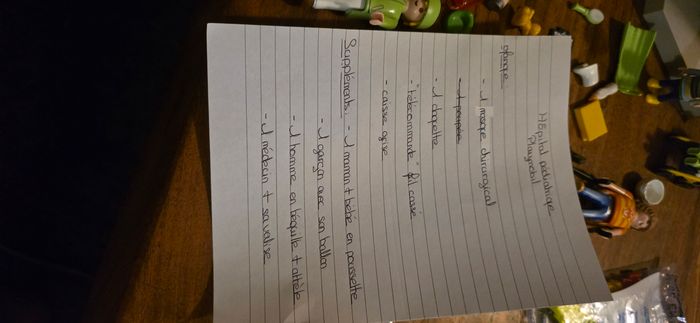 Hôpital pédiatrique
Playmobil
Manque
- 1 masque chirurgical
- 1 poupée
- 1 claquette
- "télécommande" fil cassé
- caisse grise
Suppléments: - 1 maman + bébé en poussette
- 1 garçon avec son ballon
- 1 homme en béquille + attèle
- 1 médecin + sa valise